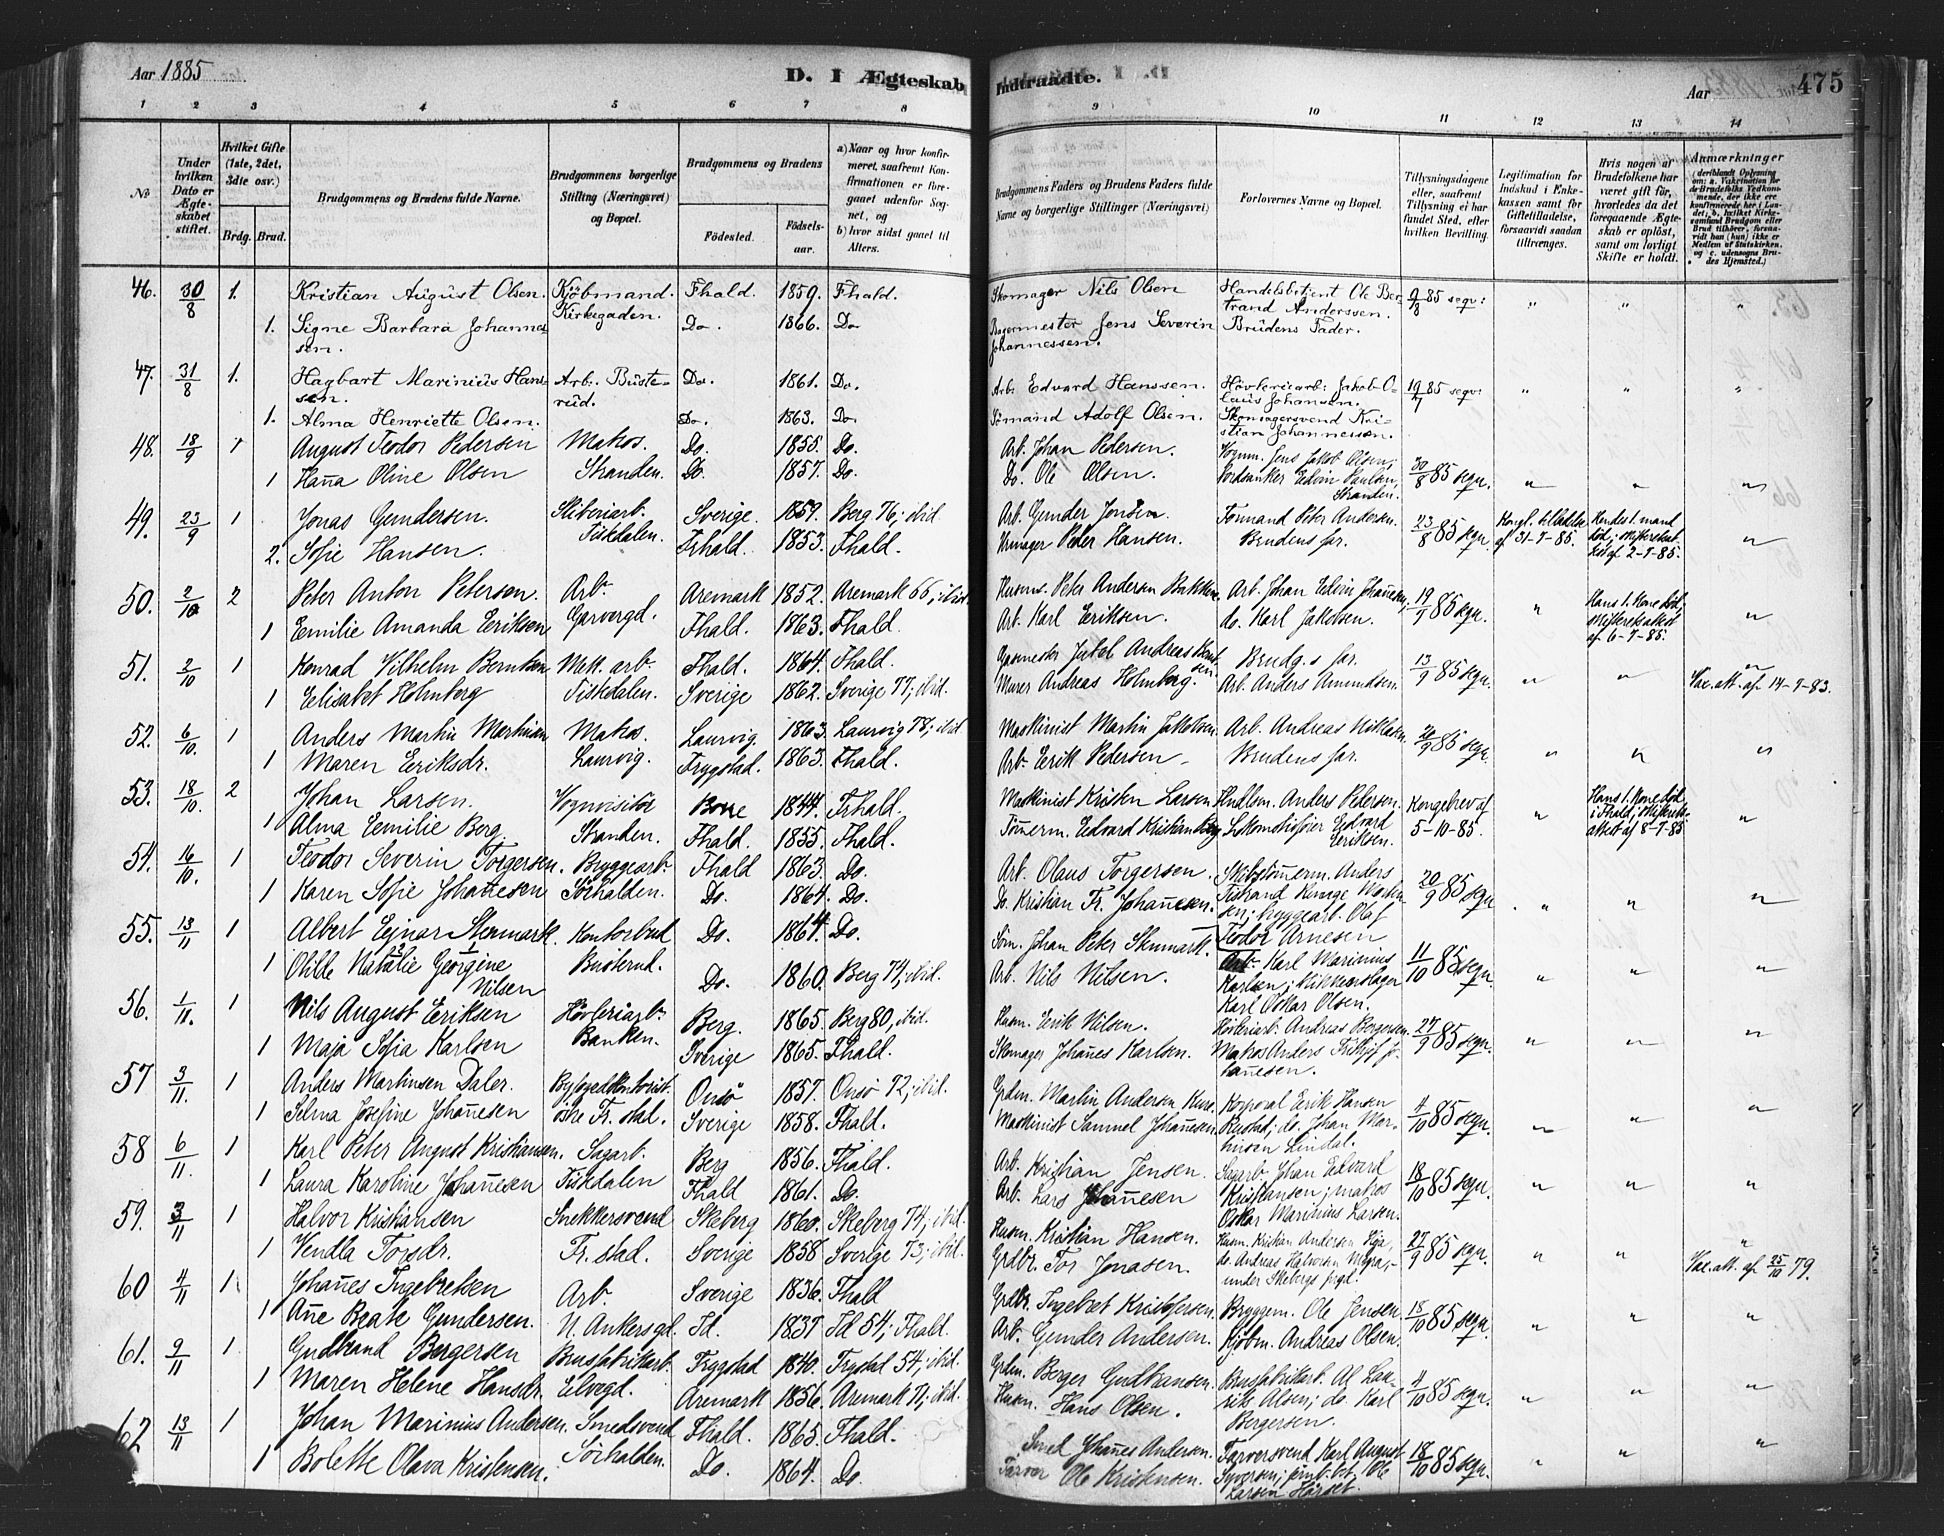 Aar 1885 D. I Ægteskab Indtraadte. Aar 475
1 2 3 4 5 6 7 8 9 10 11 12 13 14
No
Under hvilken Dato er Ægteskabet stiftet.
Hvilket Gifte (1ste, 2det, 3die osv.)
Brdg. Brud.
Brudgommens og Brudens fulde Navne.
Brudgommens borgerlige Stilling (Næringsvei) og Bopæl.
Brudgommens og Brudens
Födested. Födselsaar.
a) Naar og hvor konfirmeret, saafremt Konfirmationen er foregaaet udenfor Sognet, og
b) hvor sidst gaaet til Alters.
Brudgommens Faders og Brudens Faders fulde Navne og borgerlige Stillinger (Næringsvei)
Forlovernes Navne og Bopæl.
Tillysningsdagene eller, saafremt Tillysning ei har fundet Sted, efter hvilken Bevilling.
Legitimation for Indskud i Enkekassen samt for Giftetilladelse, forsaavidt saadan tiltrænges.
Hvis nogen af Brudefolkene har været gift før, hvorledes da det foregaaende Ægteskab er oplöst, samt om lovligt Skifte er holdt.
Anmærkninger
46. 30/8 1. Kristian August Olsen. Kjöbmand. Kirkegaden. Fhald. 1859. Fhald. Skomager Nils Olsen Handelsbetjent Ole Bertrand Anderssen. 9/8 85 segv: " " "
1. Signe Barbara Johannessen. Do. 1866. Do Bagermester Jens Severin Johannessen. Brüdens Fader.
47. 31/8 1. Hagbart Marinius Hanssen. Arb. Büsterüd. Do. 1861. Do. Arb. Edvard Hanssen. Hövleriearb: Jakob Olaus Johansen. 19/7 85 segv: " " "
1. Alma Henriette Olsen. Do. 1863. Do Sömand Adolf Olsen. Skomagersvend Kristian Johannessen.
48. 18/9 1 August Teodor Pedersen Matros. Do. 1855. Do. Arb. Johan Pedersen. Vognm. Jens Jakob Olsen; 30/8 85 segv. " " "
1 Hanna Oline Olsen Stranden. Do. 1857. Do. Do. Ole Olsen. Edvin Paulsen, Stranden.
49. 23/9 1 Jonas Gundersen. Sliberiarb. Sverige. 1859. Berg 76; ibid. Arb. Gunder Jonsen. Formand Peter Andersen. 23/8 85 segv. af 31-7-85. Hendes 1. mand död; skifteretsattest af 2-9-85. "
2. Sofie Hansen. Tiskdalen. Frhald. 1853. Fhald. Urmager Peder Hansen. Brudens far.
50. 2/10 2 Peter Anton Petersen. Arb. Aremark 1852. Aremark 66; ibid. Husm. Peter Andersen Arb. Johan Edvin Johannesen; 19/9 85 segv. " Hans 1. Kone död; skifteretsattest af 6-7-85. "
1 Emilie Amanda Eriksen Garverqd. Fhald. 1863. Fhald. Arb. Karl Eriksen. do. Karl Jakobsen.
51. 2/10 1 Konrad Vilhelm Berntsen Mek. arb. Fhald. 1864. Fhald. Gasmester Jakob Andreas Berntsen Brudg.s far. 13/9 85 segv. " " "
1 Elisabet Holmberg Tiskdalen. Sverige 1862. Sverige 77; ibid. Murer Andreas Holmberg. Arb. Anders Amundsen. Vac. att. af 14-9-83.
52. 6/10. 1 Anders Martin Martinsen Matros. Laurvig. 1863. Laurvig 78; ibid Maskinist Martin Jakobsen. Arb. Andreas Niklasen. 20/9 85 segv. " " "
1 Maren Eriksdr. Laurvig. Trygstad. 1863. Fhald. Arb. Erik Pedersen Brudens far.
53. 18/10. 2 Johan Larsen. Vognvisitör Borre 1844. Frhald. Maskinist Kristen Larsen Hndlsm. Anders Petersen. Kongebrev af 5-10-85. " Hans 1. Kone död i Fhald; skifteretsattest af 8-9-85 "
1 Alma Emilie Berg. Stranden. Fhald. 1855. Fhald. Tömerm. Edvard Kristian Berg Lokomotivfører Edvard Eriksen.
54. 16/10. 1 Teodor Severin Torgersen. Bryggearb. Fhald 1863. Do. Arb. Olaus Torgersen. Skibstömerm. Anders 20/9 85 segv " " "
1 Karen Sofie Johannesen Sörhalden. Do. 1864. Do. Do. Kristian Fr. Johannesen. Tistrand bryggearb. Olaf Teodor Arnesen
55. 13/11 1 Albert Ejnar Stenmark. Kontorbud Do. 1864. Do. Söm. Johan Peter Stenmark. Arb. Karl Marinius Karlsen; 11/10 85 segv. " " "
1 Otilde Natalie Georgine Nilsen Busterud. Do. 1860. Berg 74; ibid. Arb. Nils Nilsen. Karl Oskar Olsen.
56. 1/11. 1 Nils August Eriksen Hövleriarb. Berg. 1865. Berg 80, ibid. Husm. Erik Nilsen. Hövleriarb. Andreas Bergersen. 27/9 85 segv. " " "
1 Maja Sofia Karlsen Banken. Sverige 1865. Fhald. Skomager Johannes Karlsen. Matros Anders Fridtjof Johannesen.
57 3/11. 1 Anders Martinsen Daler. Byfogedkontorist. Onsö 1857. Onsö 72; ibid. Grdm. Martin Andersen Korporal Erik Hansen 4/10 85 segv. " " "
1 Selma Josefine Johannesen Fr. stad. Sverige 1858. Fhald. Maskinist Samuel Johannesen. Rustad; do. Johan Martinsen Lindal.
58 6/11. 1 Karl Peter August Kristiansen. Sagarb. Berg 1856. Fhald. Arb. Kristian Jensen. Sagarb. Johan Edvard Kristiansen; matros 18/10 85 segv. " " "
1 Laura Karoline Johannesen Tiskdalen Fhald 1861. Do. Arb. Lars Johannesen Oskar Marinius Larsen.
59. 3/11 1 Halvor Kristiansen Snekkersvend Skeberg 1860. Skeberg 74; ibid. Husm. Kristian Hansen. Husm. Kristian Andersen 27/9 85 segv. " " "
1 Vendla Torsdr. Fr. stad. Sverige 1858 Sverige 73; ibid. Grdbr. Tor Jonasen. do. Andreas Halvorsen under Skebergs Vac. att. af 25/10 79.
60 4/11 1 Johannes Ingebretsen Arb. Sverige 1836. Fhald Grdbr. Ingebret Kristofersen. Bryggem. Ole Jensen 18/10 85 segv. " " "
1 Anne Beate Gundersen. N. Ankersgd. Id. 1837 Id 54; Fhald. Arb. Gunder Andersen. Kjöbm. Andreas Olsen.
61. 9/11 1 Gudbrand Bergersen Brusfabrikarb. Trygstad 1840. Trystad 54; ibid. Grdm. Berger Gudbransen. Brusfabrikarb. Al. Olsen; do. Karl Bergersen. 4/10 85 segv. " " "
1 Maren Helene Hansdr. Elvegd. Aremark 1856. Aremark 71; ibid. Husm. Hans Olsen.
62 13/11 1 Johan Marinius Andersen. Smedsvend Fhald. 1865. Fhald. Smed Johannes Andersen. Farversvend Karl August Syversen; 18/10 85 segv. " " "
1 Bolette Olava Kristensen. Sörhalden. Do. 1864. Do. Farver Ole Kristensen. Ole Larsen